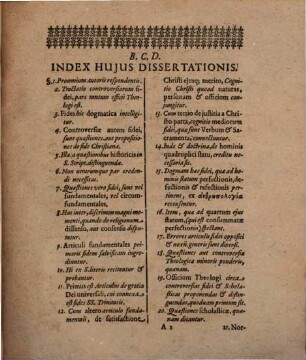 B. C. D.
INDEX HUJUS DISSERTATIONIS.
§. 1. Proœmium autoris respondentis.
2. Tractatio controversiarum fi-
dei, pars omnium officii Theo-
logi est.
3. Fides hic dogmatica intelligi-
tur.
4. Controversiæ autem fidei,
sunt quæstiones, aut propositio-
nes de fide Christiana.
5. Hæ, a quæstionibus historicis in
S. Script. distinguendæ.
6. Non utrarumque par cre-
dendi necessitas.
7. Quæstiones vero fidei, sunt vel
fundamentales, vel circum-
fundamentales.
8. Has inter, discrimen magni mo-
menti, quando de religionum
dissensu, aut consensu dispu-
tatur.
9. Articuli fundamentales pri-
marii fidem salvificam ingre-
diuntur.
10. Hi ex S. literis recitantur &
probantur.
11. Primus est Articulus de gratia
Dei universali, cui connexa
est fides SS. Trinitatis.
12. Cum altero articulo funda-
mentali, de satisfactione
Christi ejusq; merito, Cogni-
tio Christi quoad naturas,
personam & officium con-
jungitur.
13. Cum tertio de justitia a Chri-
sto parta, cognitio mediorum
fidei, quæ sunt Verbum & Sa-
cramenta, connectuntur.
14. Inde & doctrina, de hominis
quadruplici statu, creditu ne-
cessaria est.
15. Dogmata hæc fidei, quæ ad ho-
minis statum perfectionis, de-
fectionis & refectionis perti-
nent, ex
recitantur.
16. Item, quæ ad quartum ejus
statum, (qui est consummatæ
perfectionis) spectant.
17. Errores articulis fidei opposi-
ti & noxii, generis sunt diversi.
18. Quæstiones aut controversiæ
Theologicæ minoris ponderis,
numerantur.
19. Officium Theologi circa
controversias fidei & Schola-
sticas propemodum & distin-
guendas, quodnam primum sit.
20. Quæstiones scholasticæ, quæ-
nam dicantur.
A 2
21. Nor-